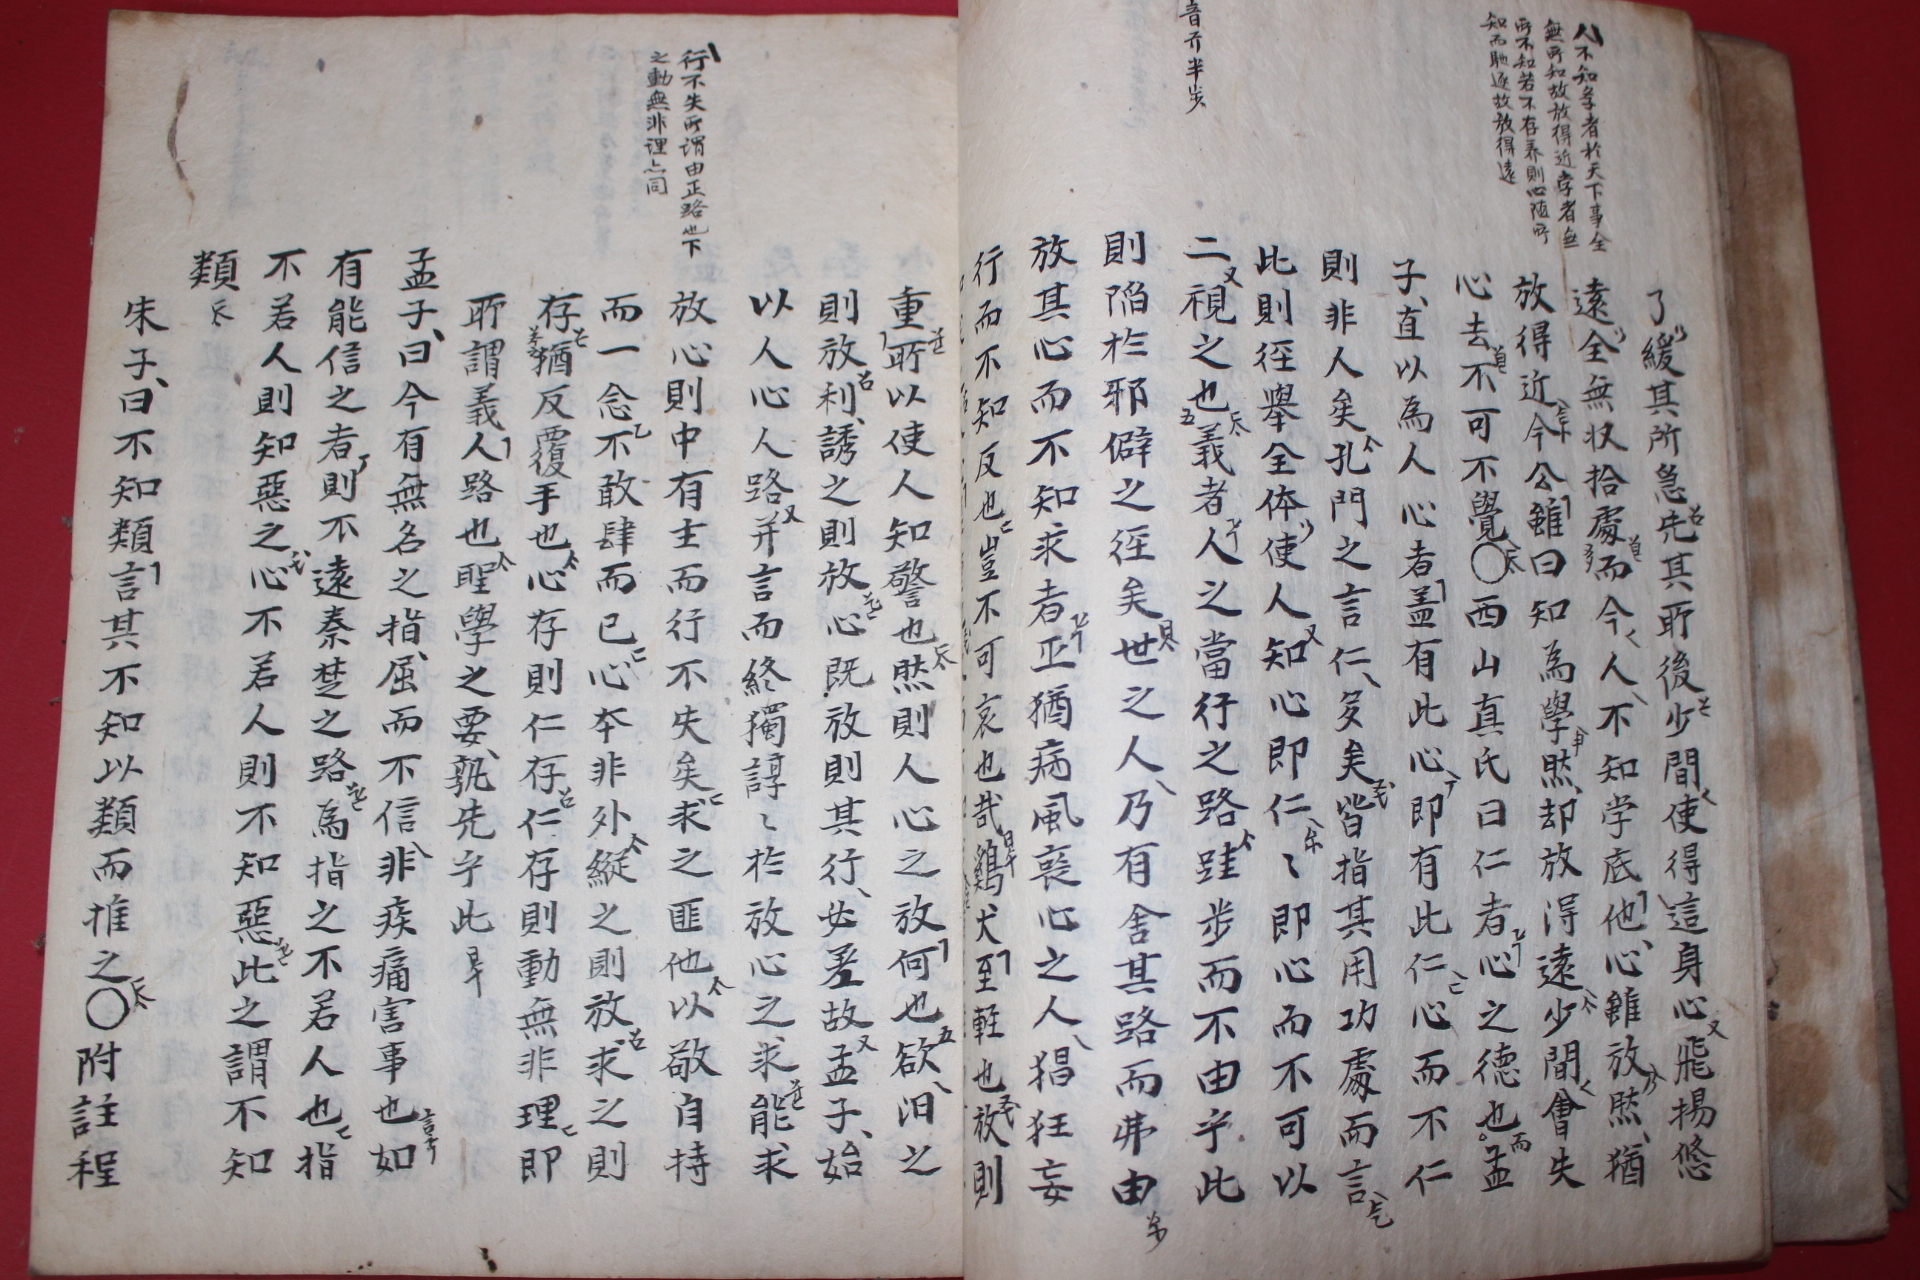 人不知学者於天下事全
無所知故放得近学者無
所不知若不存养則心随所
知而馳逐故放得遠
音亓半步
了緩其所急先其所後少間使得這身心飛揚悠
遠全無収拾處而今人不知学底他心雖放然猶
放得近今公雖曰知為學然却放得遠少間會失
心去不可不覺○西山真氏曰仁者心之德也而孟
子直以為人心者盖有此心即有此仁心而不仁
則非人矣孔門之言仁多矣皆指其用功處而言
此則径舉全体使人知心即仁〻即心而不可以
二視之也義者人之當行之路跬步而不由乎此
則陷於邪僻之径矣世之人乃有舍其路而弗由
放其心而不知求者正猶病風喪心之人猖狂妄
行而不知反也豈不可哀也哉鷄犬至軽也放則
行不失所謂由正路也下
之動無非理亦同
重所以使人知警也然則人心之放何也欲汨之
則放利誘之則放心既放則其行必差故孟子始
以人心人路并言而終獨諄〻於放心之求能求
放心則中有主而行不失矣求之匪他以敬自持
而一念不敢肆而已心本非外縱之則放求之則
存猶反覆手也心存則仁存仁存則動無非理即
所謂義人路也聖學之要孰先乎此
孟子曰今有無名之指屈而不信非疾痛害事也如
有能信之者則不遠秦楚之路為指之不若人也指
不若人則知惡之心不若人則不知惡此之謂不知
類
朱子曰不知類言其不知以類而推之○附註程